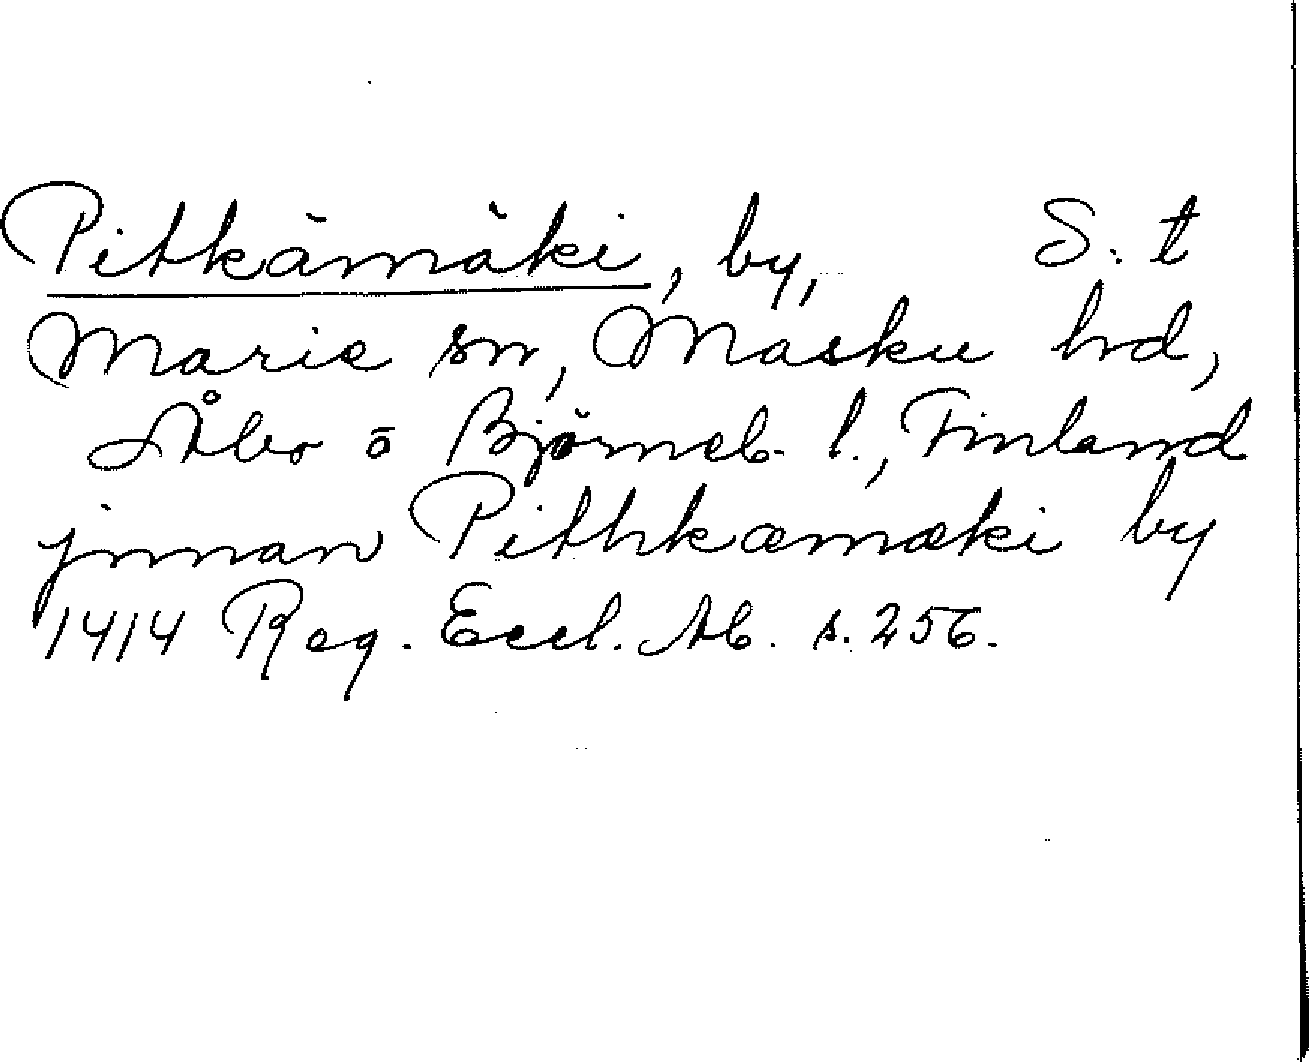 Pitkämäki, by, S:t
Marie sn, Masku hrd,
Åbo ō Björneb. l., Finland
jnnan Pithkæmæki by
1414 Reg. Eccl. Ab. s. 256.